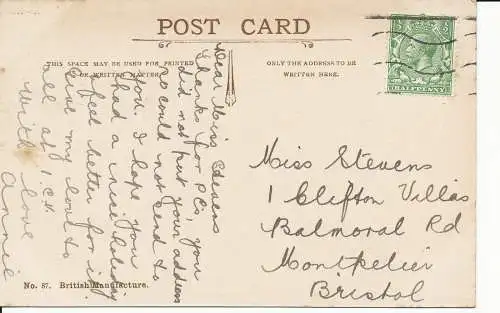 POST CARD
THIS SPACE MAY BE USED FOR PRINTED
OR WRITTEN MATTER.
ONLY THE ADDRESS TO BE
WRITTEN HERE.
HALFPENNY
Dear Miss Stevens
Thanks for PCs, you
did not put your address
so could not send to
you. I hope you
had a nice holiday
& feel better for it
Give my love to
all at 1 C.H.
With love
Annie
Miss Stevens
1 Clifton Villas
Balmoral Rd
Montpelier
Bristol
No. 87. British Manufacture.